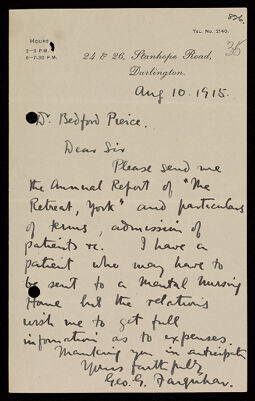 826.
Hours
2–3 P.M.
6–7-30 P.M.
Tel. No. 2140.
35
24 & 26, Stanhope Road,
Darlington.
Aug 10. 1915.
Dr. Bedford Pierce.
Dear Sir
Please send me
the Annual Report of "The
Retreat, York" and particulars
of terms, admission of
patients etc. I have a
patient who may have to
be sent to a Mental Nursing
Home but the relations
wish me to get full
information as to expenses.
Thanking you in anticipation
Yours faithfully,
Geo. G. Farquhar.